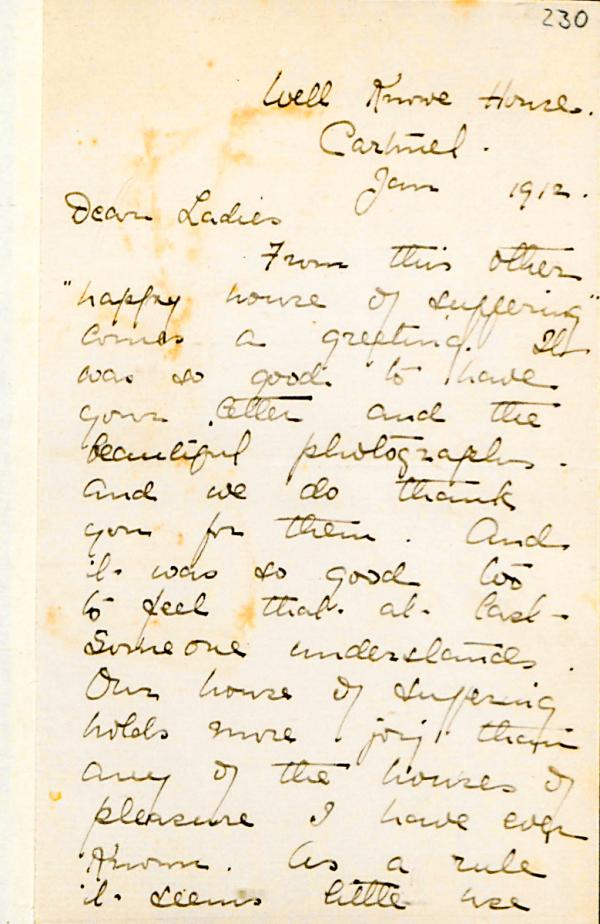 230
Well Knowe House.
Cartmel.
Jan 1912.
Dear Ladies
From this other
"happy house of suffering"
comes a greeting. It
was so good to have
your letter and the
beautiful photographs.
And we do thank
you for them. And
it was so good too
to feel that at last
someone understands.
Our house of suffering
holds more joy than
any of the houses of
pleasure I have ever
known. As a rule
it seems little use